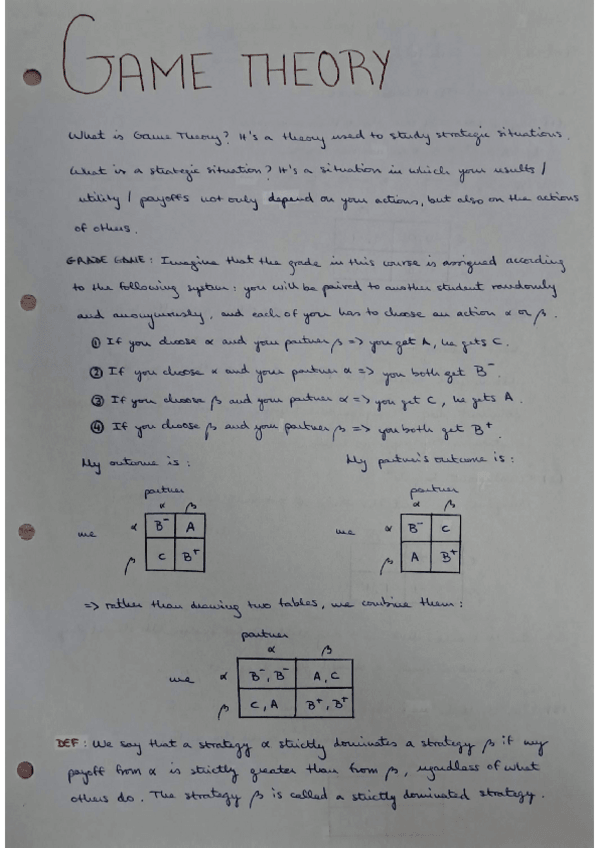 GAME THEORY
What is Game Theory? It's a theory used to study strategic situations.
What is a strategic situation? It's a situation in which your results /
utility / payoffs not only depend on your actions, but also on the actions
of others.
GRADE GAME: Imagine that the grade in this course is assigned according
to the following system: you will be paired to another student randomly
and anonymously, and each of you has to choose an action α or β.
① If you choose α and your partner β => you get A, he gets C.
② If you choose α and your partner α => you both get B⁻.
③ If you choose β and your partner α => you get C, he gets A.
④ If you choose β and your partner β => you both get B⁺.
My outcome is: My partner's outcome is:
partner partner
α β α β
me α B⁻ A me α B⁻ C
β C B⁺ β A B⁺
=> rather than drawing two tables, we combine them:
partner
α β
me α B⁻, B⁻ A, C
β C, A B⁺, B⁺
DEF: We say that a strategy α strictly dominates a strategy β if my
payoff from α is strictly greater than from β, regardless of what
others do. The strategy β is called a strictly dominated strategy.